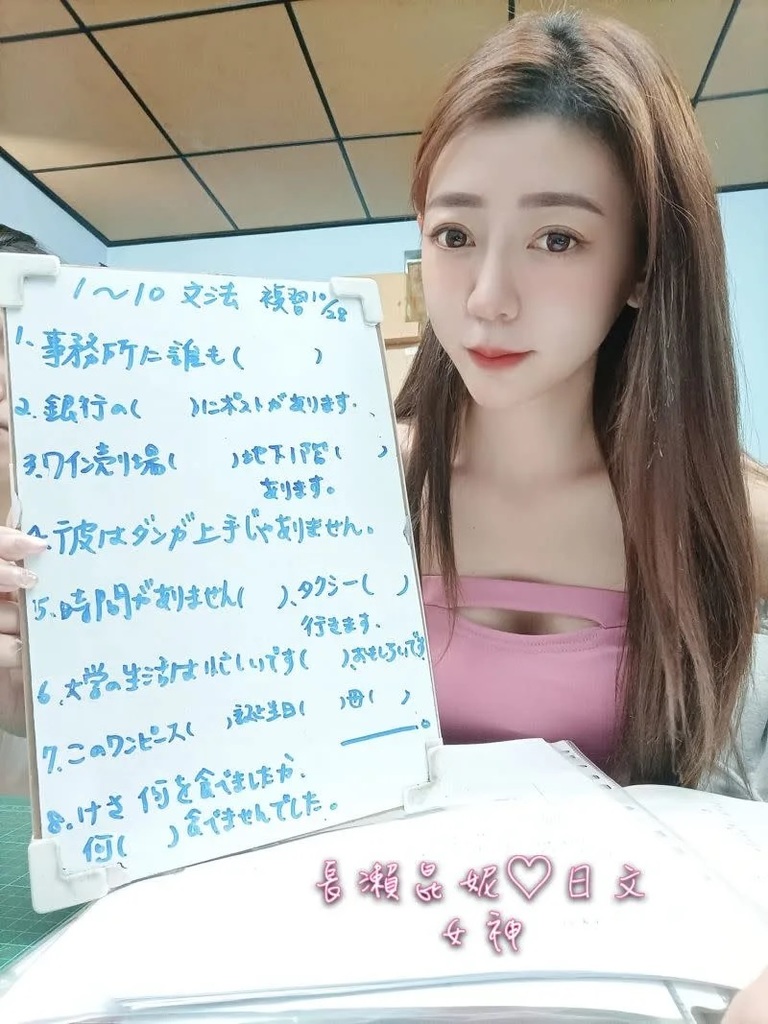 1～10 文法 複習 10/28
1. 事務所に誰も(　　)
2. 銀行の(　　)にポストがあります。
3. ワイン売り場(　　)地下1階(　　)
あります。
4. 彼はダンが上手じゃありません。
5. 時間がありません(　　)、タクシー(　　)
行きます。
6. 大学の生活は忙しいです(　　)、おもしろいです
7. このワンピース(　　)誕生日(　　)母(　　)
＿＿＿。
8. けさ 何を食べましたか。
何(　　)食べませんでした。
長瀨昆妮♡日文
女神